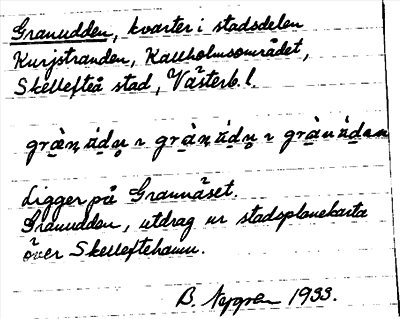 Granudden, kvarter i stadsdelen
Kurjstranden, Kallholmsområdet,
Skellefteå stad, Västerb. l.
Ligger på Grannäset.
Granudden, utdrag ur stadsplanekarta
över Skelleftehamn.
B. Nygren 1933.